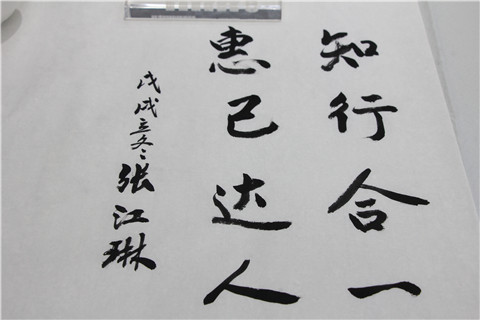 知行合一
惠己达人
戊戌立冬张江琳